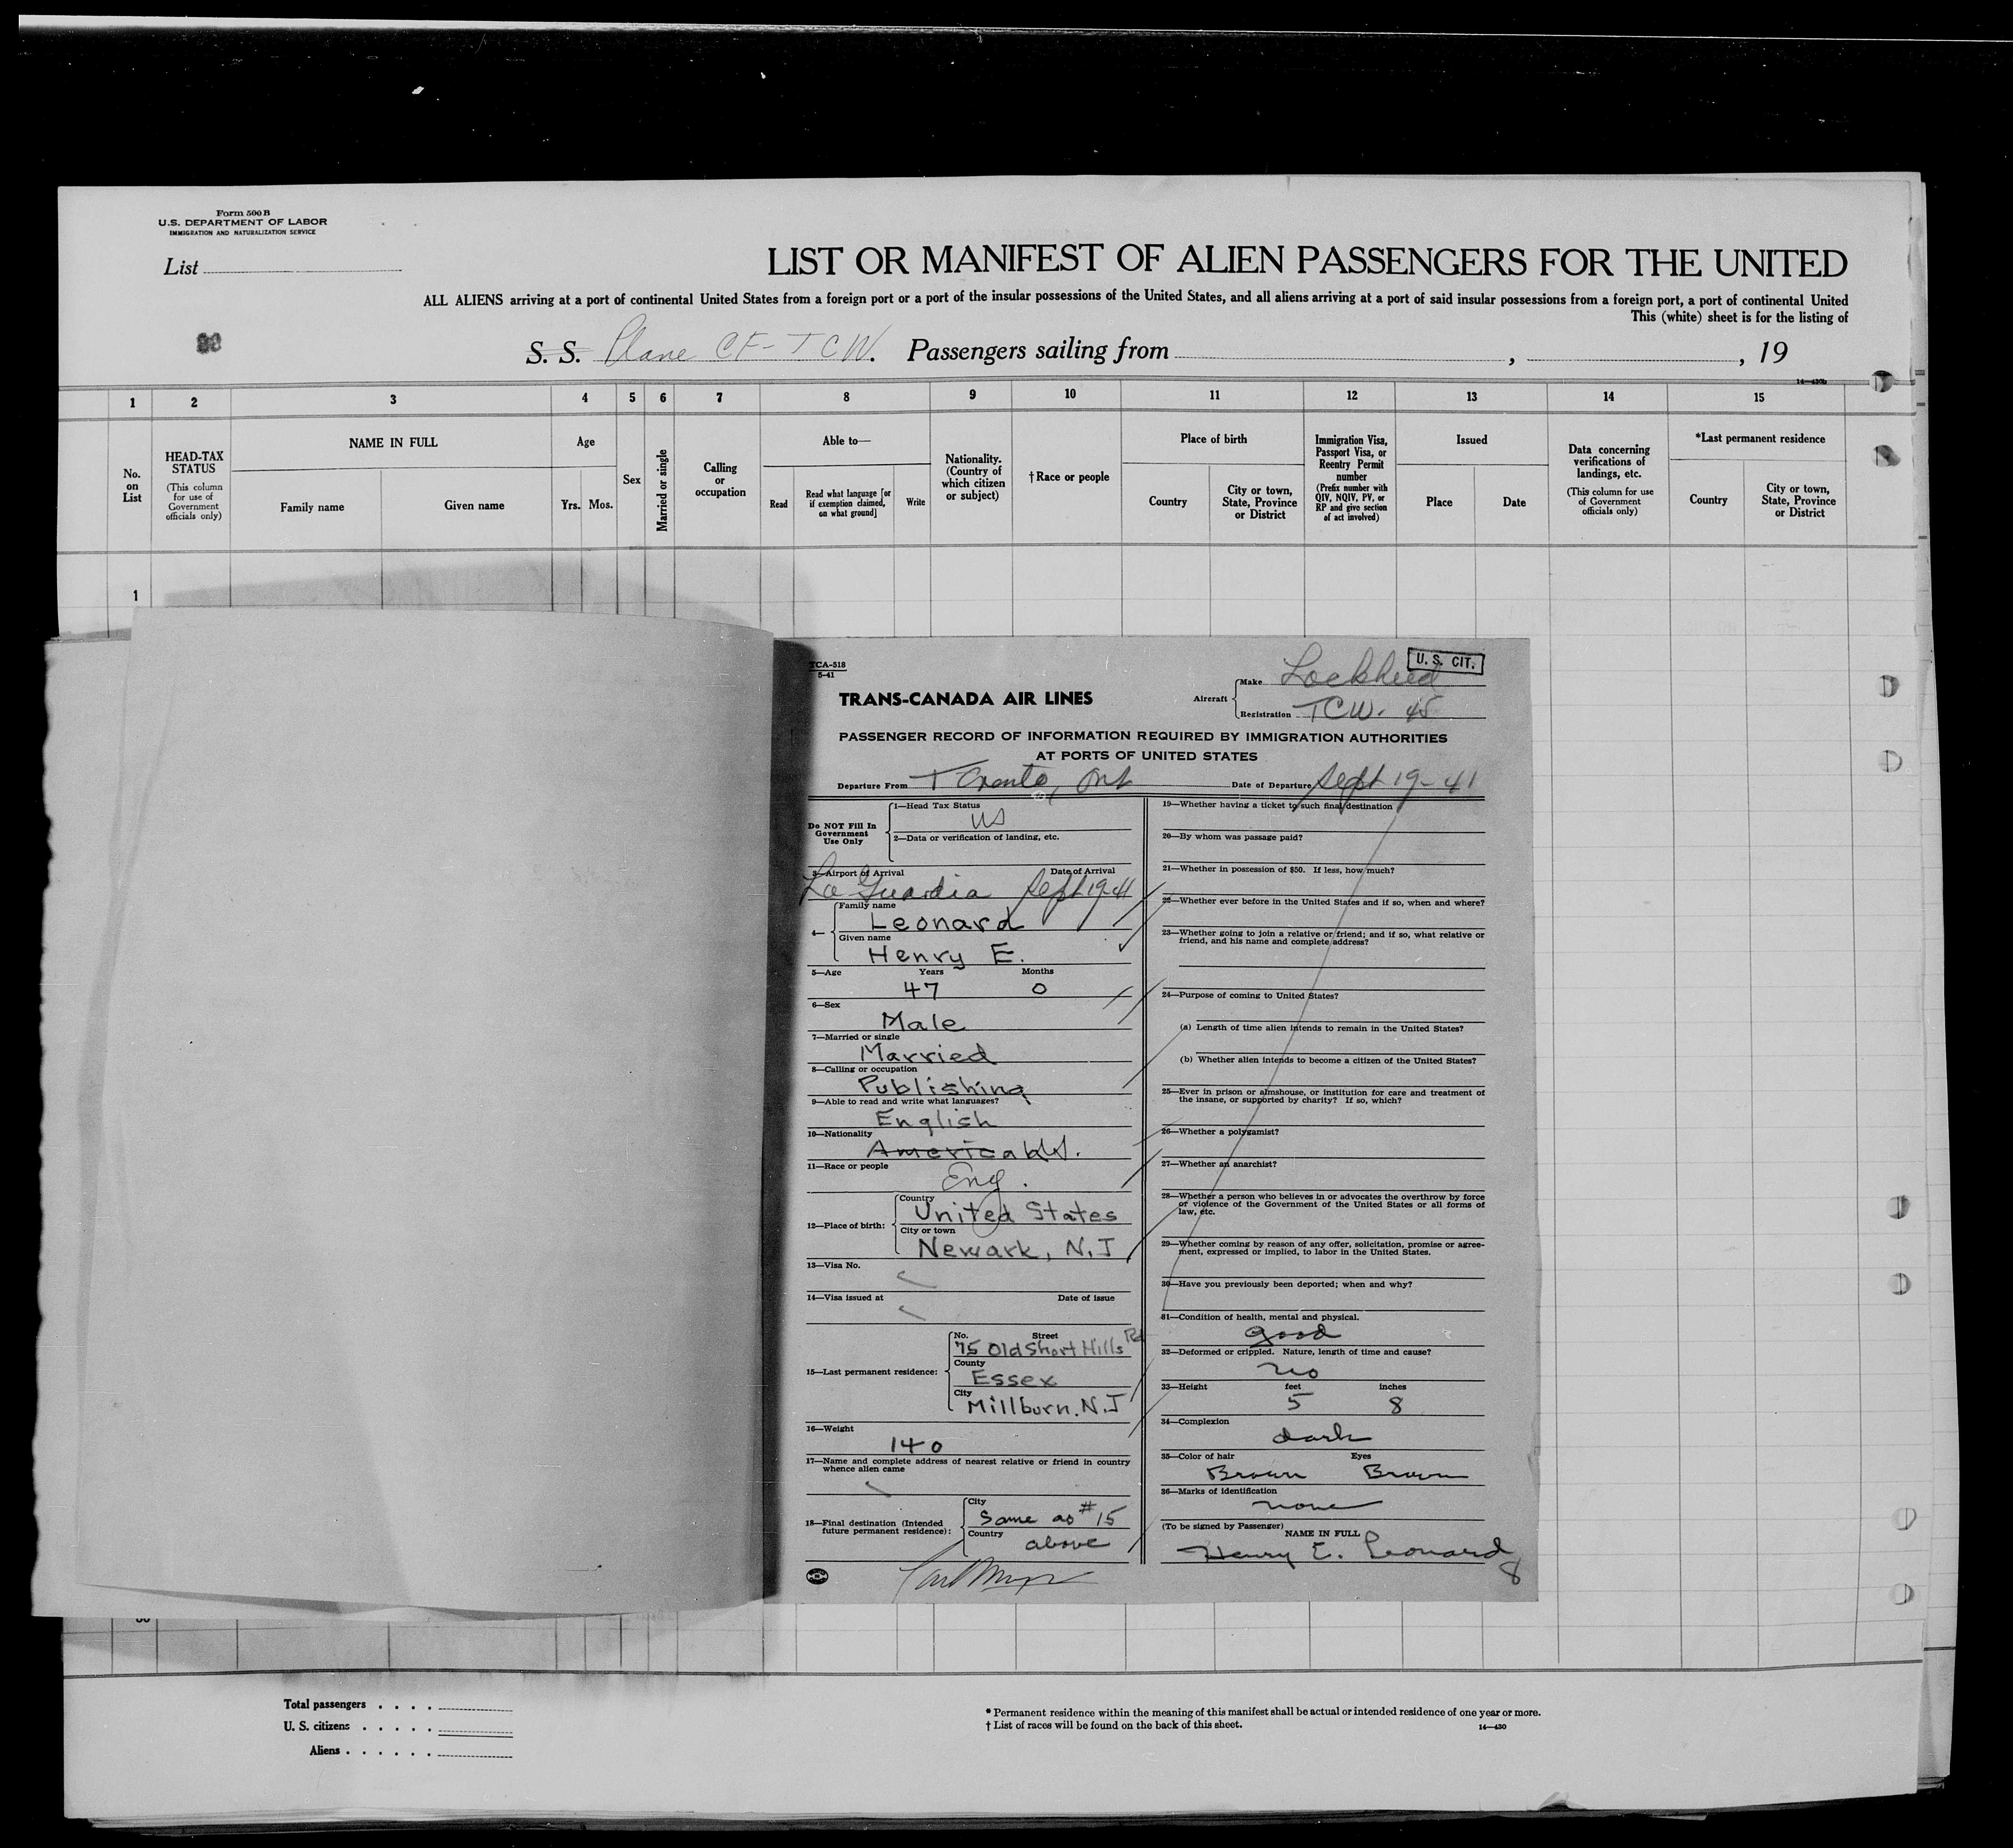 Form 500 B
U.S. DEPARTMENT OF LABOR
IMMIGRATION AND NATURALIZATION SERVICE
List
LIST OR MANIFEST OF ALIEN PASSENGERS FOR THE UNITED
ALL ALIENS arriving at a port of continental United States from a foreign port or a port of the insular possessions of the United States, and all aliens arriving at a port of said insular possessions from a foreign port, a port of continental United
This (white) sheet is for the listing of
S. S. Plane CF-TCW. Passengers sailing from , , 19
14—430b
1 2 3 4 5 6 7 8 9 10 11 12 13 14 15
No. on List
HEAD-TAX STATUS
(This column for use of Government officials only)
NAME IN FULL
Family name
Given name
Age
Yrs. Mos.
Sex
Married or single
Calling or occupation
Able to—
Read
Read what language [or if exemption claimed, on what ground]
Write
Nationality. (Country of which citizen or subject)
†Race or people
Place of birth
Country
City or town, State, Province or District
Immigration Visa, Passport Visa, or Reentry Permit number
(Prefix number with QIV, NQIV, PV, or RP and give section of act involved)
Issued
Place
Date
Data concerning verifications of landings, etc.
(This column for use of Government officials only)
*Last permanent residence
Country
City or town, State, Province or District
1
TCA-518
5-41
U. S. CIT.
TRANS-CANADA AIR LINES
Aircraft
Make Lockheed
Registration TCW. 45
PASSENGER RECORD OF INFORMATION REQUIRED BY IMMIGRATION AUTHORITIES
AT PORTS OF UNITED STATES
Departure From Toronto, Ont Date of Departure Sept 19-41
Do NOT Fill In Government Use Only
1—Head Tax Status
US
2—Data or verification of landing, etc.
3—Airport of Arrival Date of Arrival
La Guardia Sept 19-41
4—
Family name
Leonard
Given name
Henry E.
5—Age Years Months
47 0
6—Sex
Male
7—Married or single
Married
8—Calling or occupation
Publishing
9—Able to read and write what languages?
English
10—Nationality
American US.
11—Race or people
Eng.
12—Place of birth:
Country
United States
City or town
Newark, N.J
13—Visa No.
14—Visa issued at Date of issue
15—Last permanent residence:
No. Street
75 Old Short Hills Rd
County
Essex
City
Millburn. N.J
16—Weight
140
17—Name and complete address of nearest relative or friend in country whence alien came
18—Final destination (Intended future permanent residence):
City
Same as #15
Country
above
19—Whether having a ticket to such final destination
20—By whom was passage paid?
21—Whether in possession of $50. If less, how much?
22—Whether ever before in the United States and if so, when and where?
23—Whether going to join a relative or friend; and if so, what relative or
friend, and his name and complete address?
24—Purpose of coming to United States?
(a) Length of time alien intends to remain in the United States?
(b) Whether alien intends to become a citizen of the United States?
25—Ever in prison or almshouse, or institution for care and treatment of
the insane, or supported by charity? If so, which?
26—Whether a polygamist?
27—Whether an anarchist?
28—Whether a person who believes in or advocates the overthrow by force
or violence of the Government of the United States or all forms of
law, etc.
29—Whether coming by reason of any offer, solicitation, promise or agree-
ment, expressed or implied, to labor in the United States.
30—Have you previously been deported; when and why?
31—Condition of health, mental and physical.
good
32—Deformed or crippled. Nature, length of time and cause?
no
33—Height feet inches
5 8
34—Complexion
dark
35—Color of hair Eyes
Brown Brown
36—Marks of identification
none
(To be signed by Passenger)
NAME IN FULL
Henry E. Leonard
8
Total passengers . . . .
U. S. citizens . . . . .
Aliens . . . . . .
* Permanent residence within the meaning of this manifest shall be actual or intended residence of one year or more.
† List of races will be found on the back of this sheet.
14—430